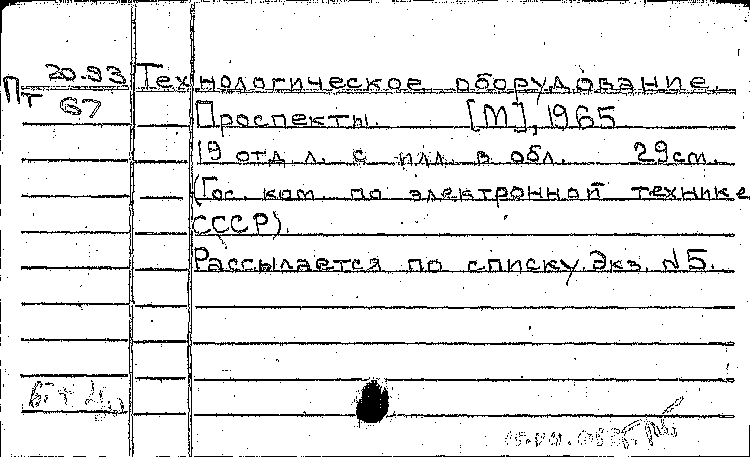 Пт 20.93
67
Технологическое оборудование.
Проспекты. [М], 1965
19 отд. л. с илл. в обл. 29см.
(Гос. ком. по электронной технике
СССР).
Рассылается по списку. Экз. №5.